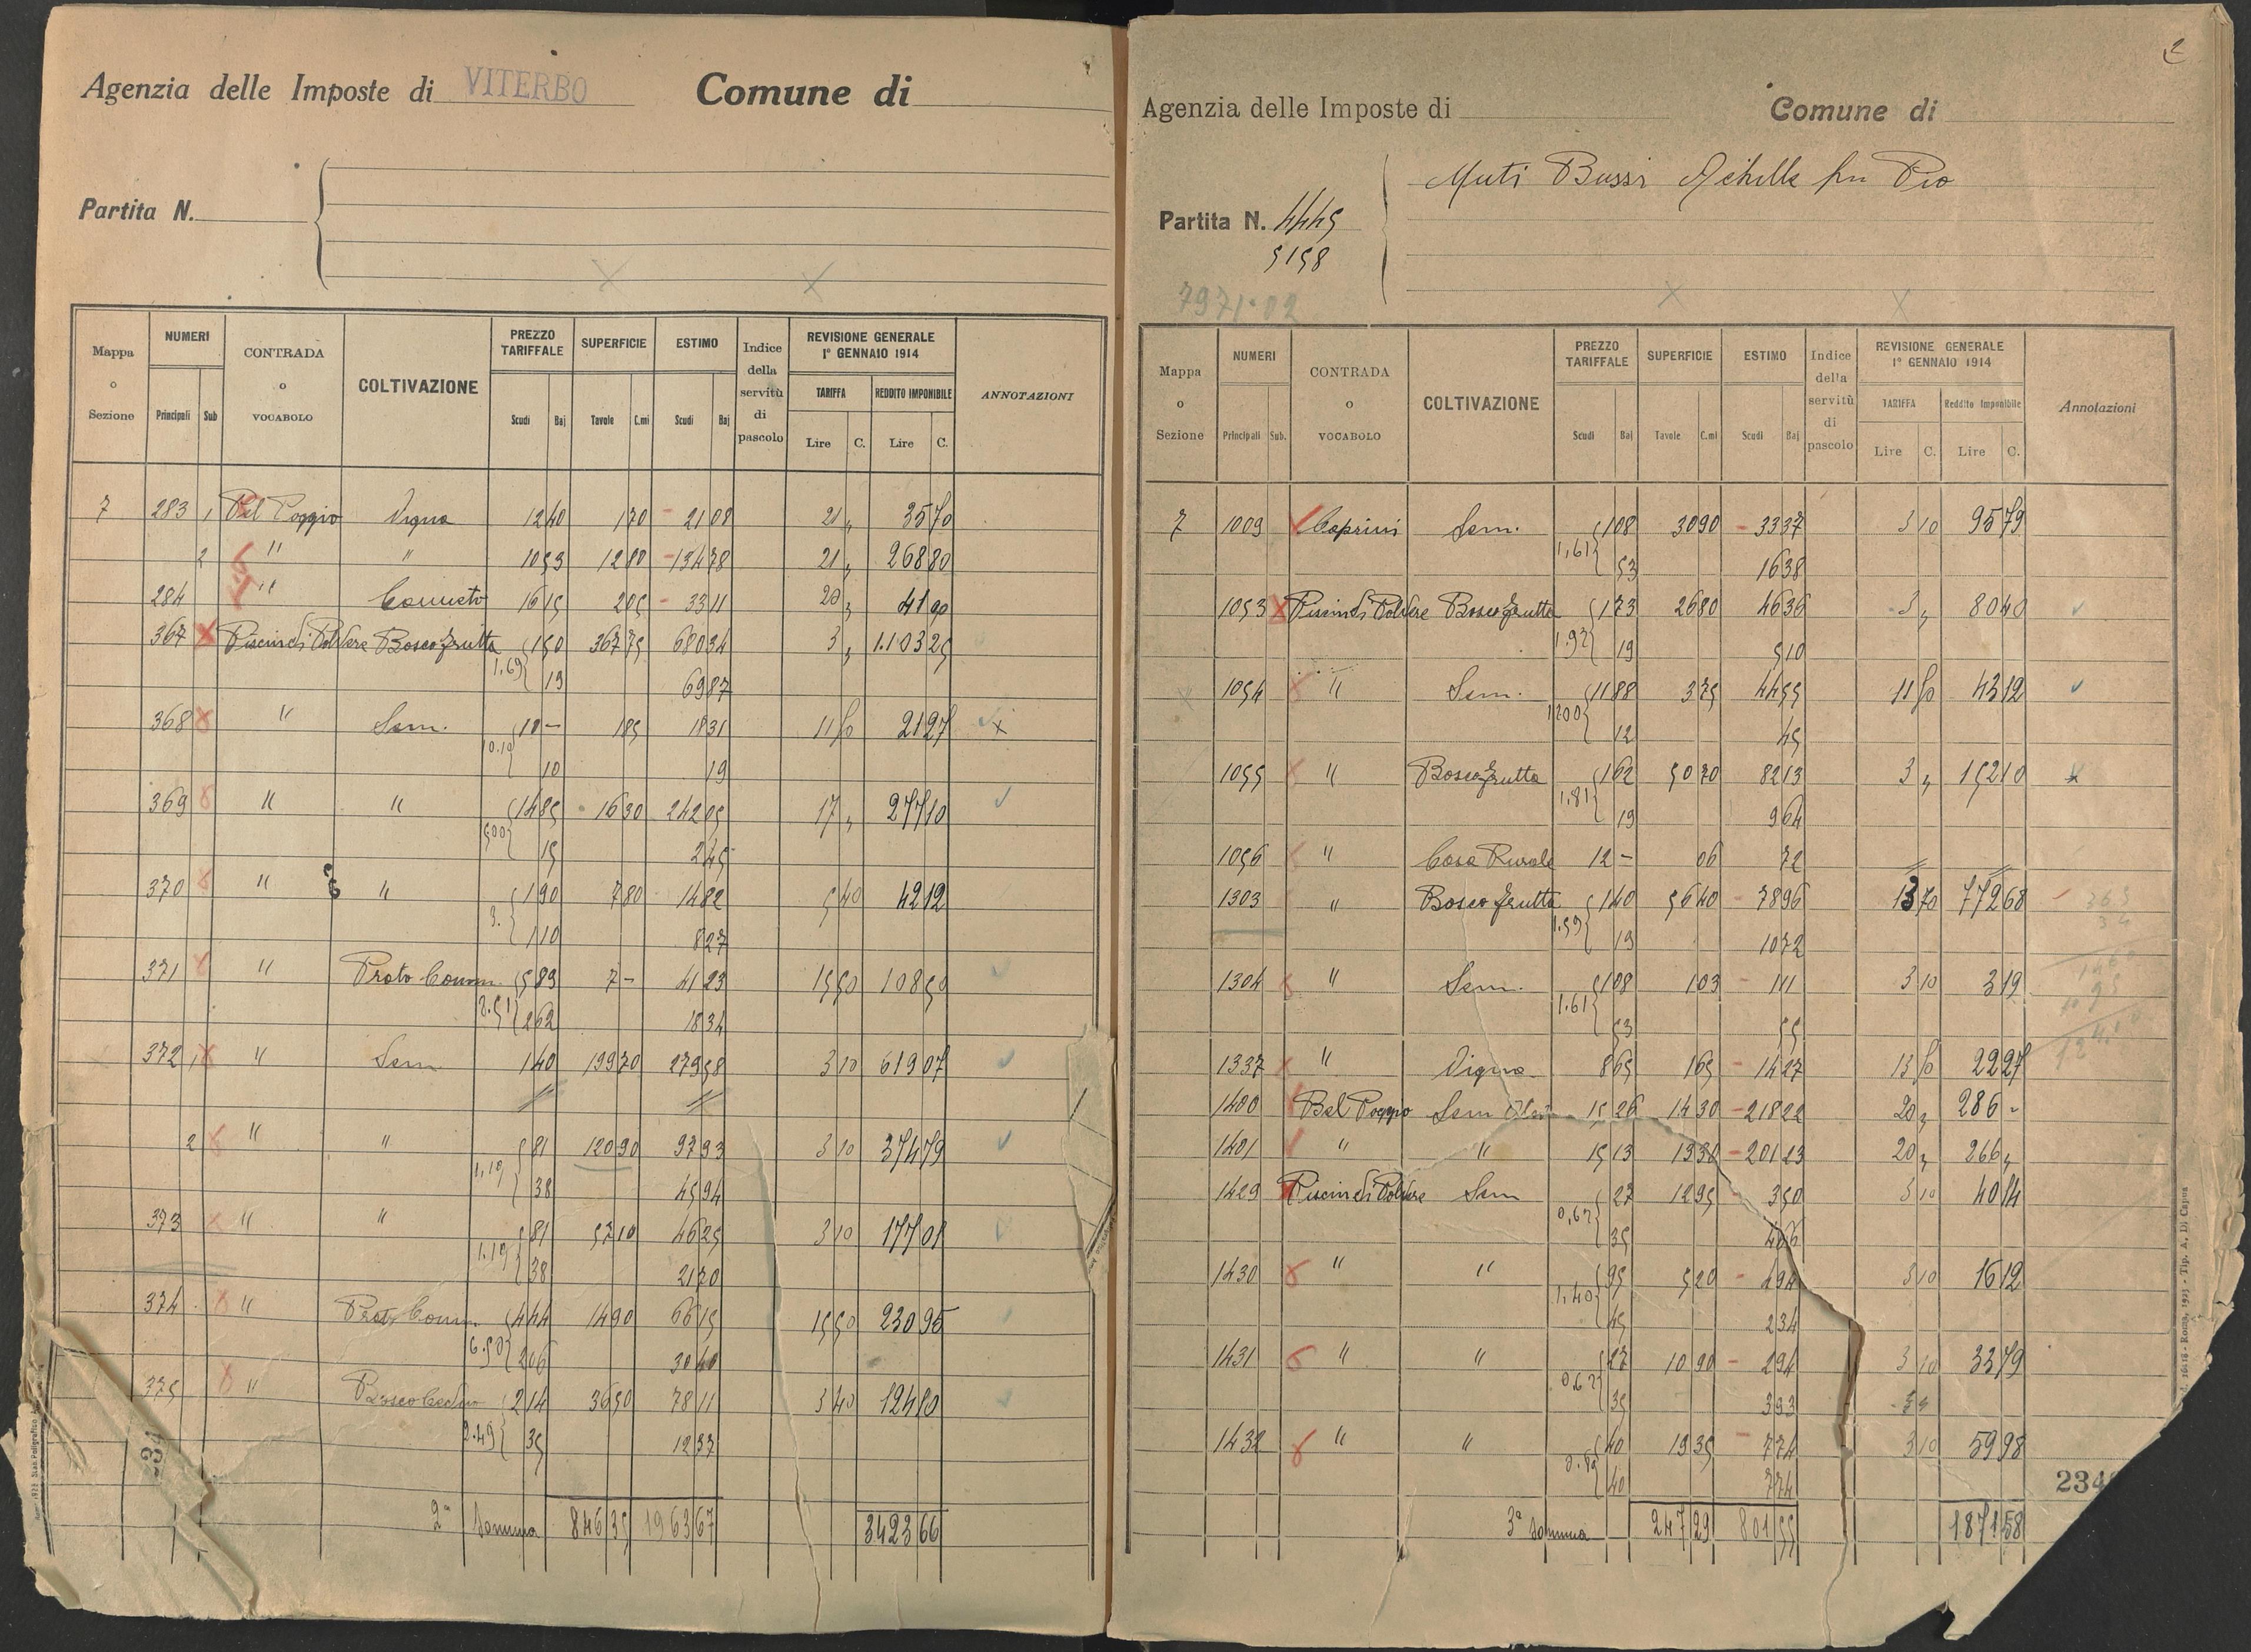 Agenzia delle Imposte di VITERBO Comune di
Partita N.
Mappa o Sezione NUMERI CONTRADA o VOCABOLO COLTIVAZIONE PREZZO TARIFFALE SUPERFICIE ESTIMO Indice della servitù di pascolo REVISIONE GENERALE 1° GENNAIO 1914 ANNOTAZIONI
TARIFFA REDDITO IMPONIBILE
Principali Sub Scudi Baj Tavole C.mi Scudi Baj Lire C. Lire C.
7 283 1 Bel Poggio Vigna 12 40 1 70 21 08 21 " 35 70
2 " " 10 53 12 80 134 78 21 " 268 80
284 " Canneto 16 15 2 05 33 11 20 " 41 00
367 Piscin di Polvere Bosco frutta 1 50 367 75 680 34 3 " 1.103 25
1.69 19 69 87
368 " Sem. 10 - 1 85 18 31 11 50 21 27
10.10 10 19
369 " " 14 85 16 30 242 05 17 " 277 10
15 2 45
370 " " 1 90 7 80 14 82 5 40 42 12
3. 1 10 8 27
371 " Prato Comm. 5 89 7 - 41 23 15 50 108 50
8.51 2 62 18 34
372 1 " Sem 1 40 199 70 279 58 3 10 619 07
2 " " 81 120 90 97 93 3 10 374 79
1.19 38 45 94
373 " " 81 57 10 46 25 3 10 177 01
1.19 38 21 70
374 " Prato Comm. 4 44 14 90 66 15 15 50 230 95
6.50 2 06 30 40
375 " Bosco Ceduo 2 14 36 50 78 11 3 40 124 10
2.49 35 12 37
2a Somma 846 35 1963 67 3423 66
Agenzia delle Imposte di Comune di
2
Muti Bussi Achille fu Pio
Partita N. 4445
5158
7971.02
Mappa o Sezione NUMERI CONTRADA o VOCABOLO COLTIVAZIONE PREZZO TARIFFALE SUPERFICIE ESTIMO Indice della servitù di pascolo REVISIONE GENERALE 1° GENNAIO 1914 Annotazioni
TARIFFA Reddito Imponibile
Principali Sub. Scudi Baj Tavole C.mi Scudi Baj Lire C. Lire C.
7 1009 Caprini Sem. 1 08 30 90 33 37 3 10 95 79
1,61 53 16 38
1053 Piscin di Polvere Bosco frutta 1 73 26 80 46 36 3 " 80 40
1.92 19 5 10
1054 " Sem. 11 88 3 75 44 55 11 50 43 12
1200 12 45
1055 " Bosco frutta 1 62 50 70 82 13 3 " 152 10
1.81 19 9 64
1056 " Casa Rurale 12 - 06 72
1303 " Bosco frutta 1 40 56 40 78 96 13 70 772 68
1.59 19 10 72
1304 " Sem. 1 08 1 03 1 11 3 10 3 19
1.61 53 55
1337 " Vigna 8 65 1 65 14 27 13 50 22 27
1400 Bel Poggio Sem 15 26 14 30 218 22 20 " 286 -
1401 " " 15 13 13 30 201 23 20 " 266 "
1429 Piscin di Polvere Sem 27 12 95 3 50 3 10 40 14
0,62 35
1430 " " 95 5 20 4 94 3 10 16 12
1,40 45 2 34
1431 " " 27 10 90 2 94 3 10 33 79
0,62 35
1432 " " 40 19 35 7 74 3 10 59 98
40 7 74
3a Somma 247 29 801 55 1871 58